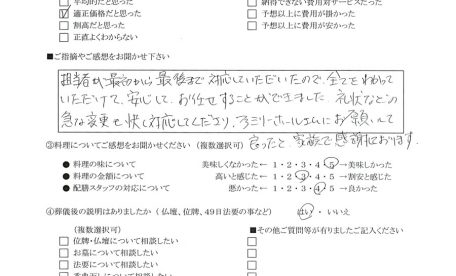 □ 平均的だと思った □ 納得できない費用対サービスだった
☑ 適正価格だと思った □ 予想以上に費用が掛かった
□ 割高だと思った □ 予想以上に費用が安かった
□ 正直よくわからない
■ご指摘やご感想をお聞かせ下さい
担当者が最初から最後まで対応していただいたので、全てをわかって
いただけて、安心して、お任せすることができました。礼状などの
急な変更も快く対応してくださり、ファミリーホールさんにお願いして
良かったと、家族で感謝しております。
③料理についてご感想をお聞かせください（複数選択可）
● 料理の味について 美味しくなかった ← 1・2・3・4・5 → 美味しかった
● 料理の金額について 高いと感じた ← 1・2・3・4・5 → 割安と感じた
● 配膳スタッフの対応について 悪かった ← 1・2・3・4・5 → 良かった
④葬儀後の説明はありましたか（仏壇、位牌、49日法要の事など） はい・いいえ
（複数選択可） ■その他ご質問等が有りましたご記入ください
□ 位牌・仏壇について相談したい
□ お墓について相談したい
□ 法要について相談したい